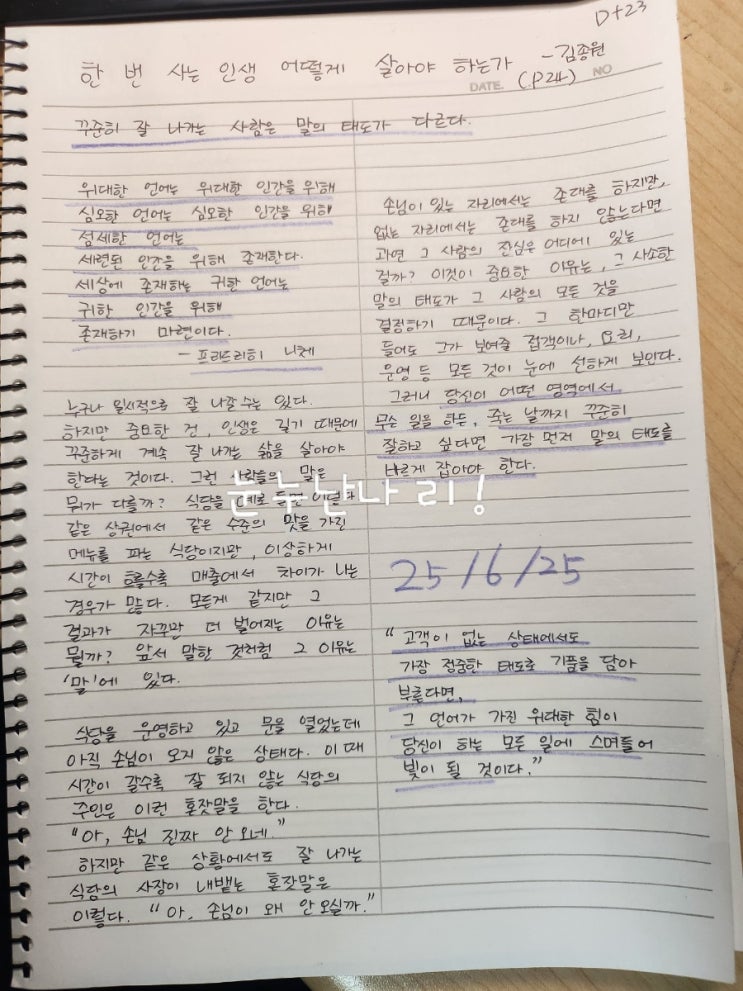 D+23
한 번 사는 인생 어떻게 살아야 하는가 -김종원
(P24)
DATE. NO
꾸준히 잘 나가는 사람은 말의 태도가 다르다.
위대한 언어는 위대한 인간을 위해
심오한 언어는 심오한 인간을 위해
섬세한 언어는
세련된 인간을 위해 존재한다.
세상에 존재하는 귀한 언어는
귀한 인간을 위해
존재하기 마련이다.
- 프리드리히 니체
누구나 일시적으로 잘 나갈 수는 있다.
하지만 중요한 건, 인생은 길기 때문에
꾸준하게 계속 잘 나가는 삶을 살아야
한다는 것이다. 그런 사람들의 말은
뭐가 다를까? 식당을 예로 들면 이렇다
같은 상권에서 같은 수준의 맛을 가진
메뉴를 파는 식당이지만, 이상하게
시간이 흐를수록 매출에서 차이가 나는
경우가 많다. 모든게 같지만 그
결과가 자꾸만 더 벌어지는 이유는
뭘까? 앞서 말한 것처럼 그 이유는
'말'에 있다.
식당을 운영하고 있고 문을 열었는데
아직 손님이 오지 않은 상태다. 이 때
시간이 갈수록 잘 되지 않는 식당의
주인은 이런 혼잣말을 한다.
"아, 손님 진짜 안 오네."
하지만 같은 상황에서도 잘 나가는
식당의 사장이 내뱉는 혼잣말은
이렇다. "아, 손님이 왜 안 오실까."
손님이 있는 자리에서는 존대를 하지만,
없는 자리에서는 존대를 하지 않는다면
과연 그 사람의 진심은 어디에 있는
걸까? 이것이 중요한 이유는, 그 사소한
말의 태도가 그 사람의 모든 것을
결정하기 때문이다. 그 한마디만
들어도 그가 보여줄 접객이나, 요리,
운영 등 모든 것이 눈에 선하게 보인다.
그러니 당신이 어떤 영역에서
무슨 일을 하든, 죽는 날까지 꾸준히
잘하고 싶다면 가장 먼저 말의 태도를
바르게 잡아야 한다.
눈누난나 리!
25/6/25
"고객이 없는 상태에서도
가장 정중한 태도로 기품을 담아
부른다면,
그 언어가 가진 위대한 힘이
당신이 하는 모든 일에 스며들어
빛이 될 것이다."